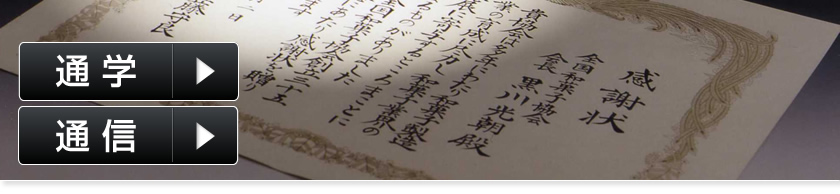 通学
通信
感謝状
全国和菓子協会
会長 黒川光朝殿
貴協会は多年にわたり和菓子製造
業の育成に尽力し和菓子業界の
展に寄与するところまことに
ものがありました
全国和菓子協会創立三十五
あたり感謝状を贈り
二日
藤守良